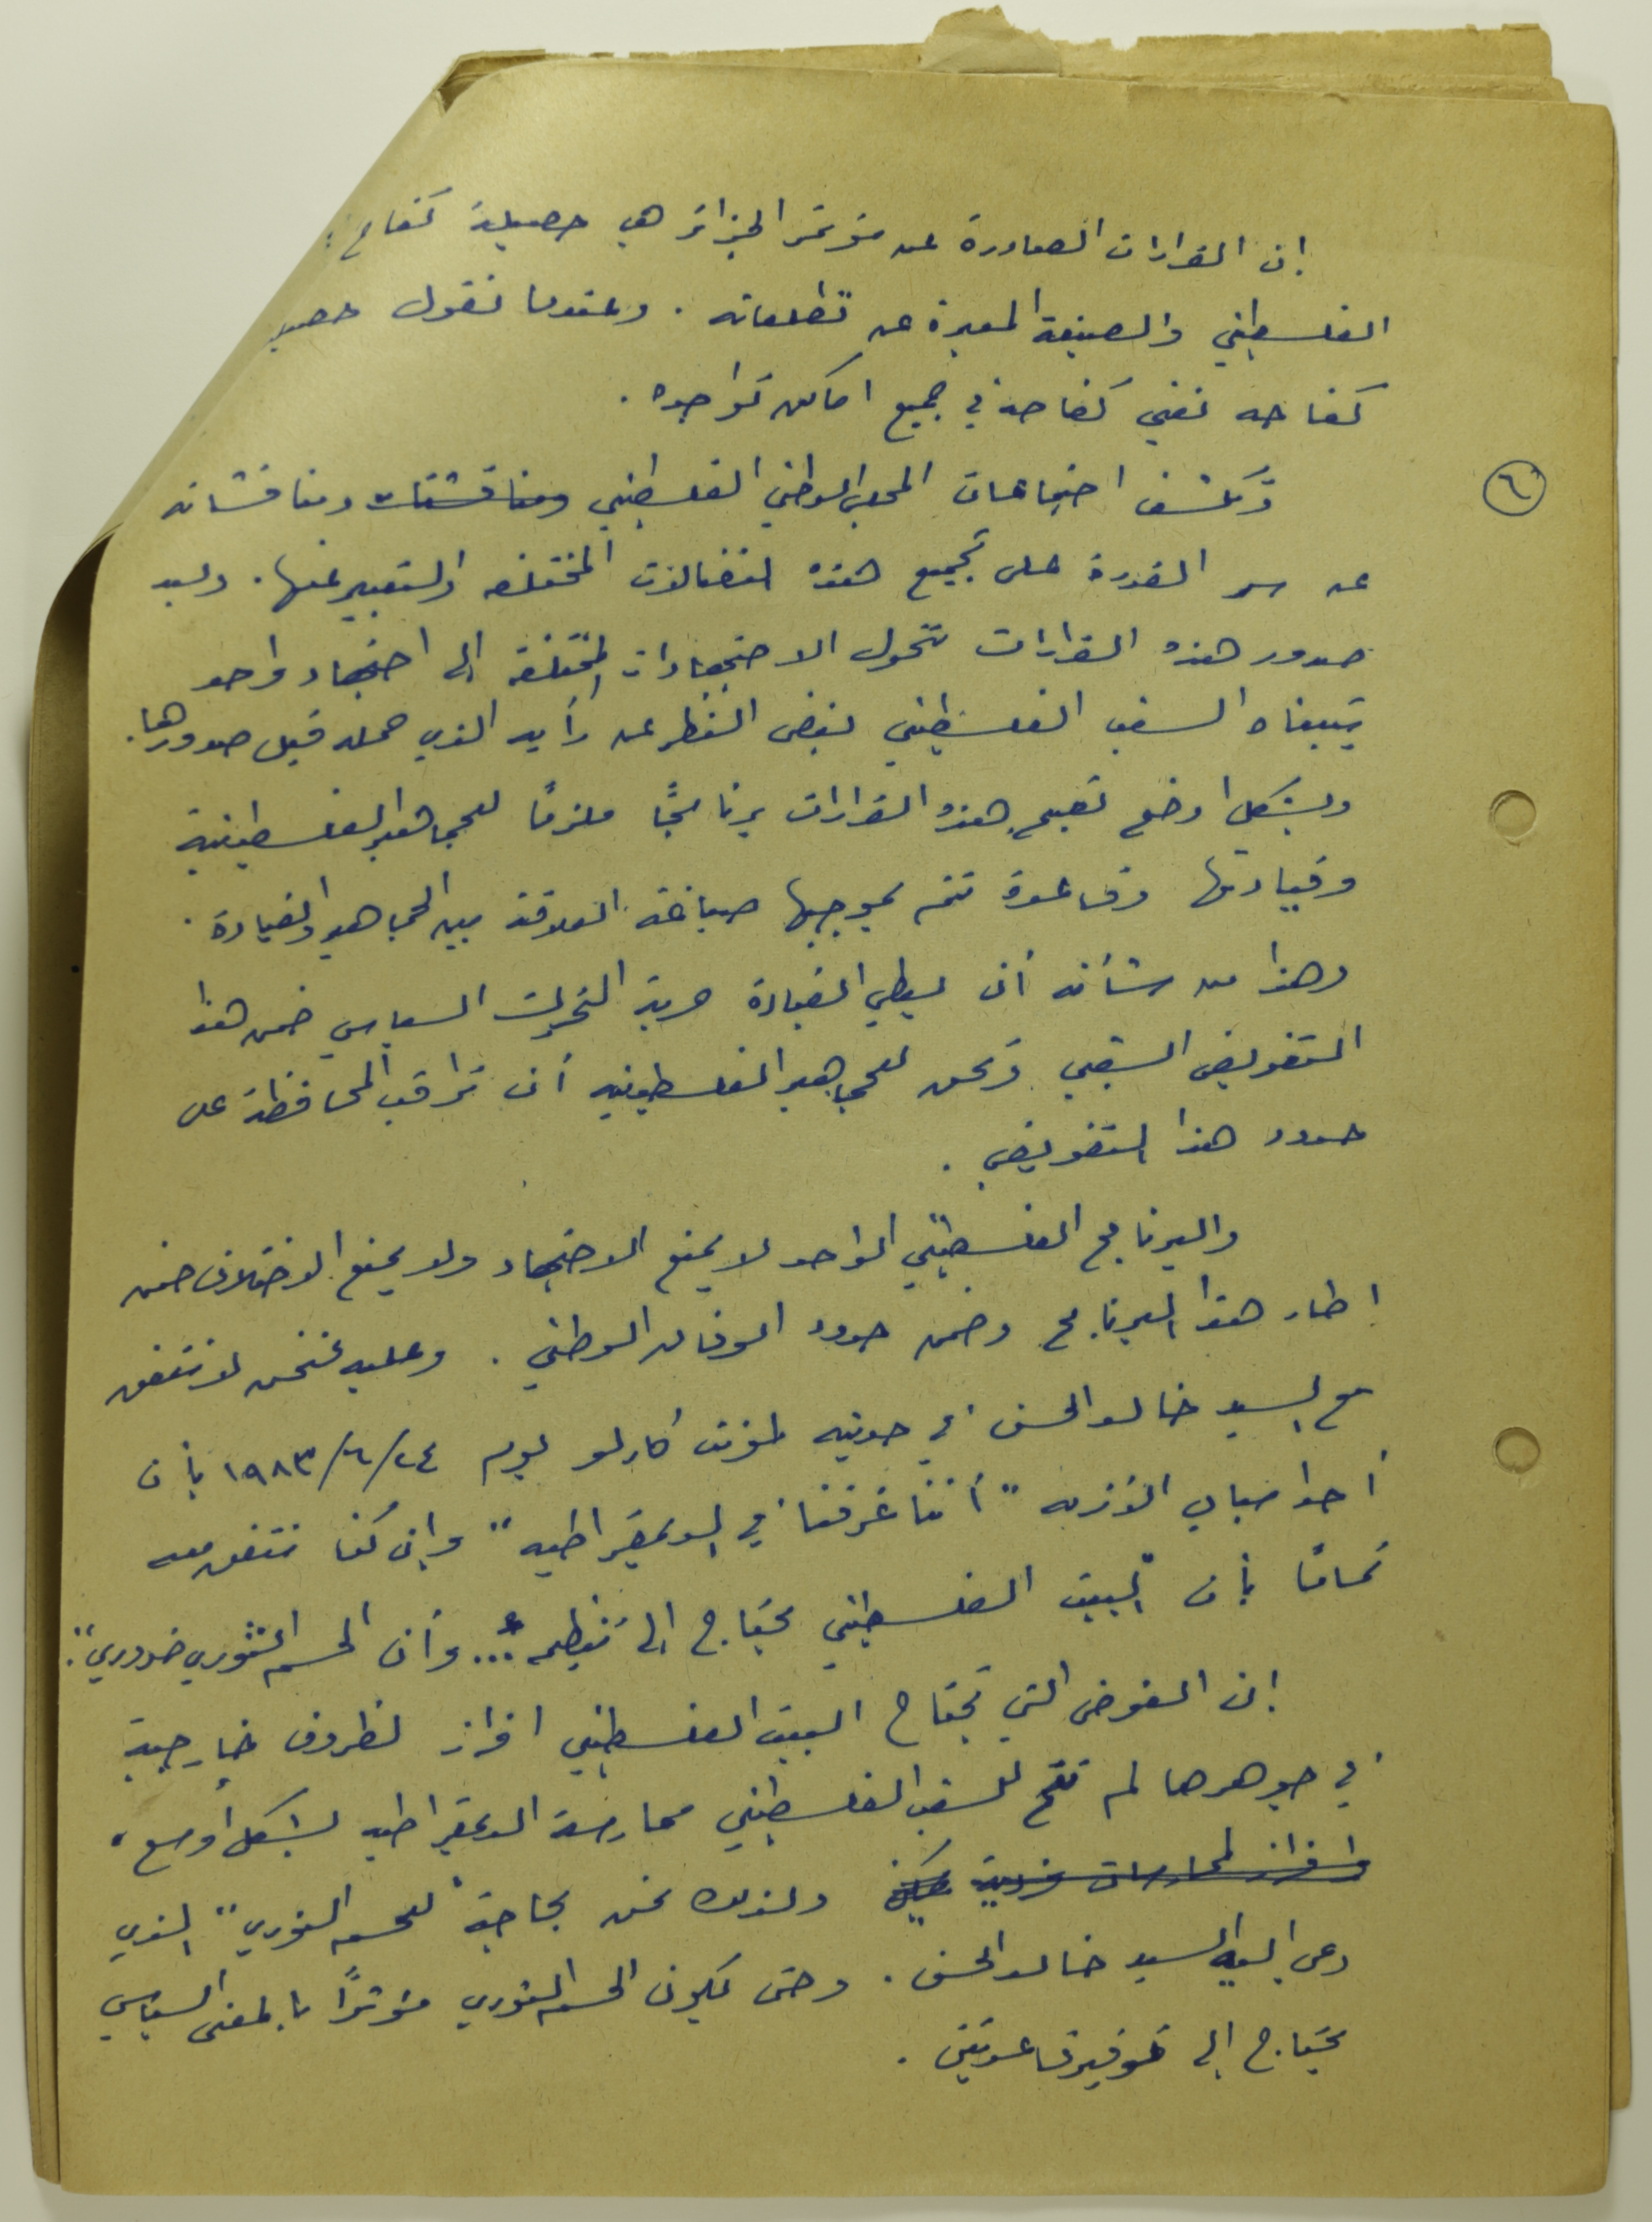 ان القرارات الصادرة عن مؤتمر الجزائر هي حصيلة كفاح
الفلسطيني والصيغة المعبرة عن تطلعاته . وعندما نقول حصيـ
كفاحه نعني كفاحه في جميع اماكن تواجده .
٦
وتكشف اجتماعات المجلس الوطني الفلسطيني ومناقشات ومناقشاته
عن سر القدرة على تجميع هذه النضالات المختلفه والتعبير عنها . وبعد
صدور هذه القرارات تتحول الاجتهادات المختلفة الى اجتهاد واحد
يتبناه الشعب الفلسطيني بغض النظر عن رأيه الذي حمله قبل صدورها .
وبشكل اوضح تصبح هذه القرارات برنامجًا ملزمًا للجماهير الفلسطينية
وقيادتها وقاعدة تتم بموجبها صياغة العلاقة بين الجماهير والقيادة .
وهذا من شأنه أن يعطي القيادة حرية التحرك السياسي ضمن هذا
التفويض الشعبي ويحق للجماهير الفلسطينيه أن تراقب المحافظة على
حدود هذا التفويض .
والبرنامج الفلسطيني الواحد لا يمنع الاجتهاد ولا يمنع الاختلاف ضمن
اطار هذا البرنامج وضمن حدود الوفاق الوطني . وعليه فنحن لا نتفق
مع السيد خالد الحسن في حديثه لمونت كارلو يوم ٢٤/٦/١٩٨٣ بأن
أحد اسباب الأزمه " أننا غرقنا في الديمقراطيه " وإن كنا نتفق معه
تمامًا بأن "البيت الفلسطيني يحتاج الى تنظيم ... وأن الحسم الثوري ضروري " .
إن الفوضى التي تجتاح البيت الفلسطيني افراز لظروف خارجية
في جوهرها لم تتح للشعب الفلسطيني ممارسة الديمقراطيه بشكل أوسع ،
وافراز لممارسات ولذلك نحن بحاجة "للحسم الثوري" الذي
دعى اليه السيد خالد الحسن . وحتى يكون الحسم الثوري مؤثرًا بالمعنى السياسي
يحتاج الى توفير قاعدتين .